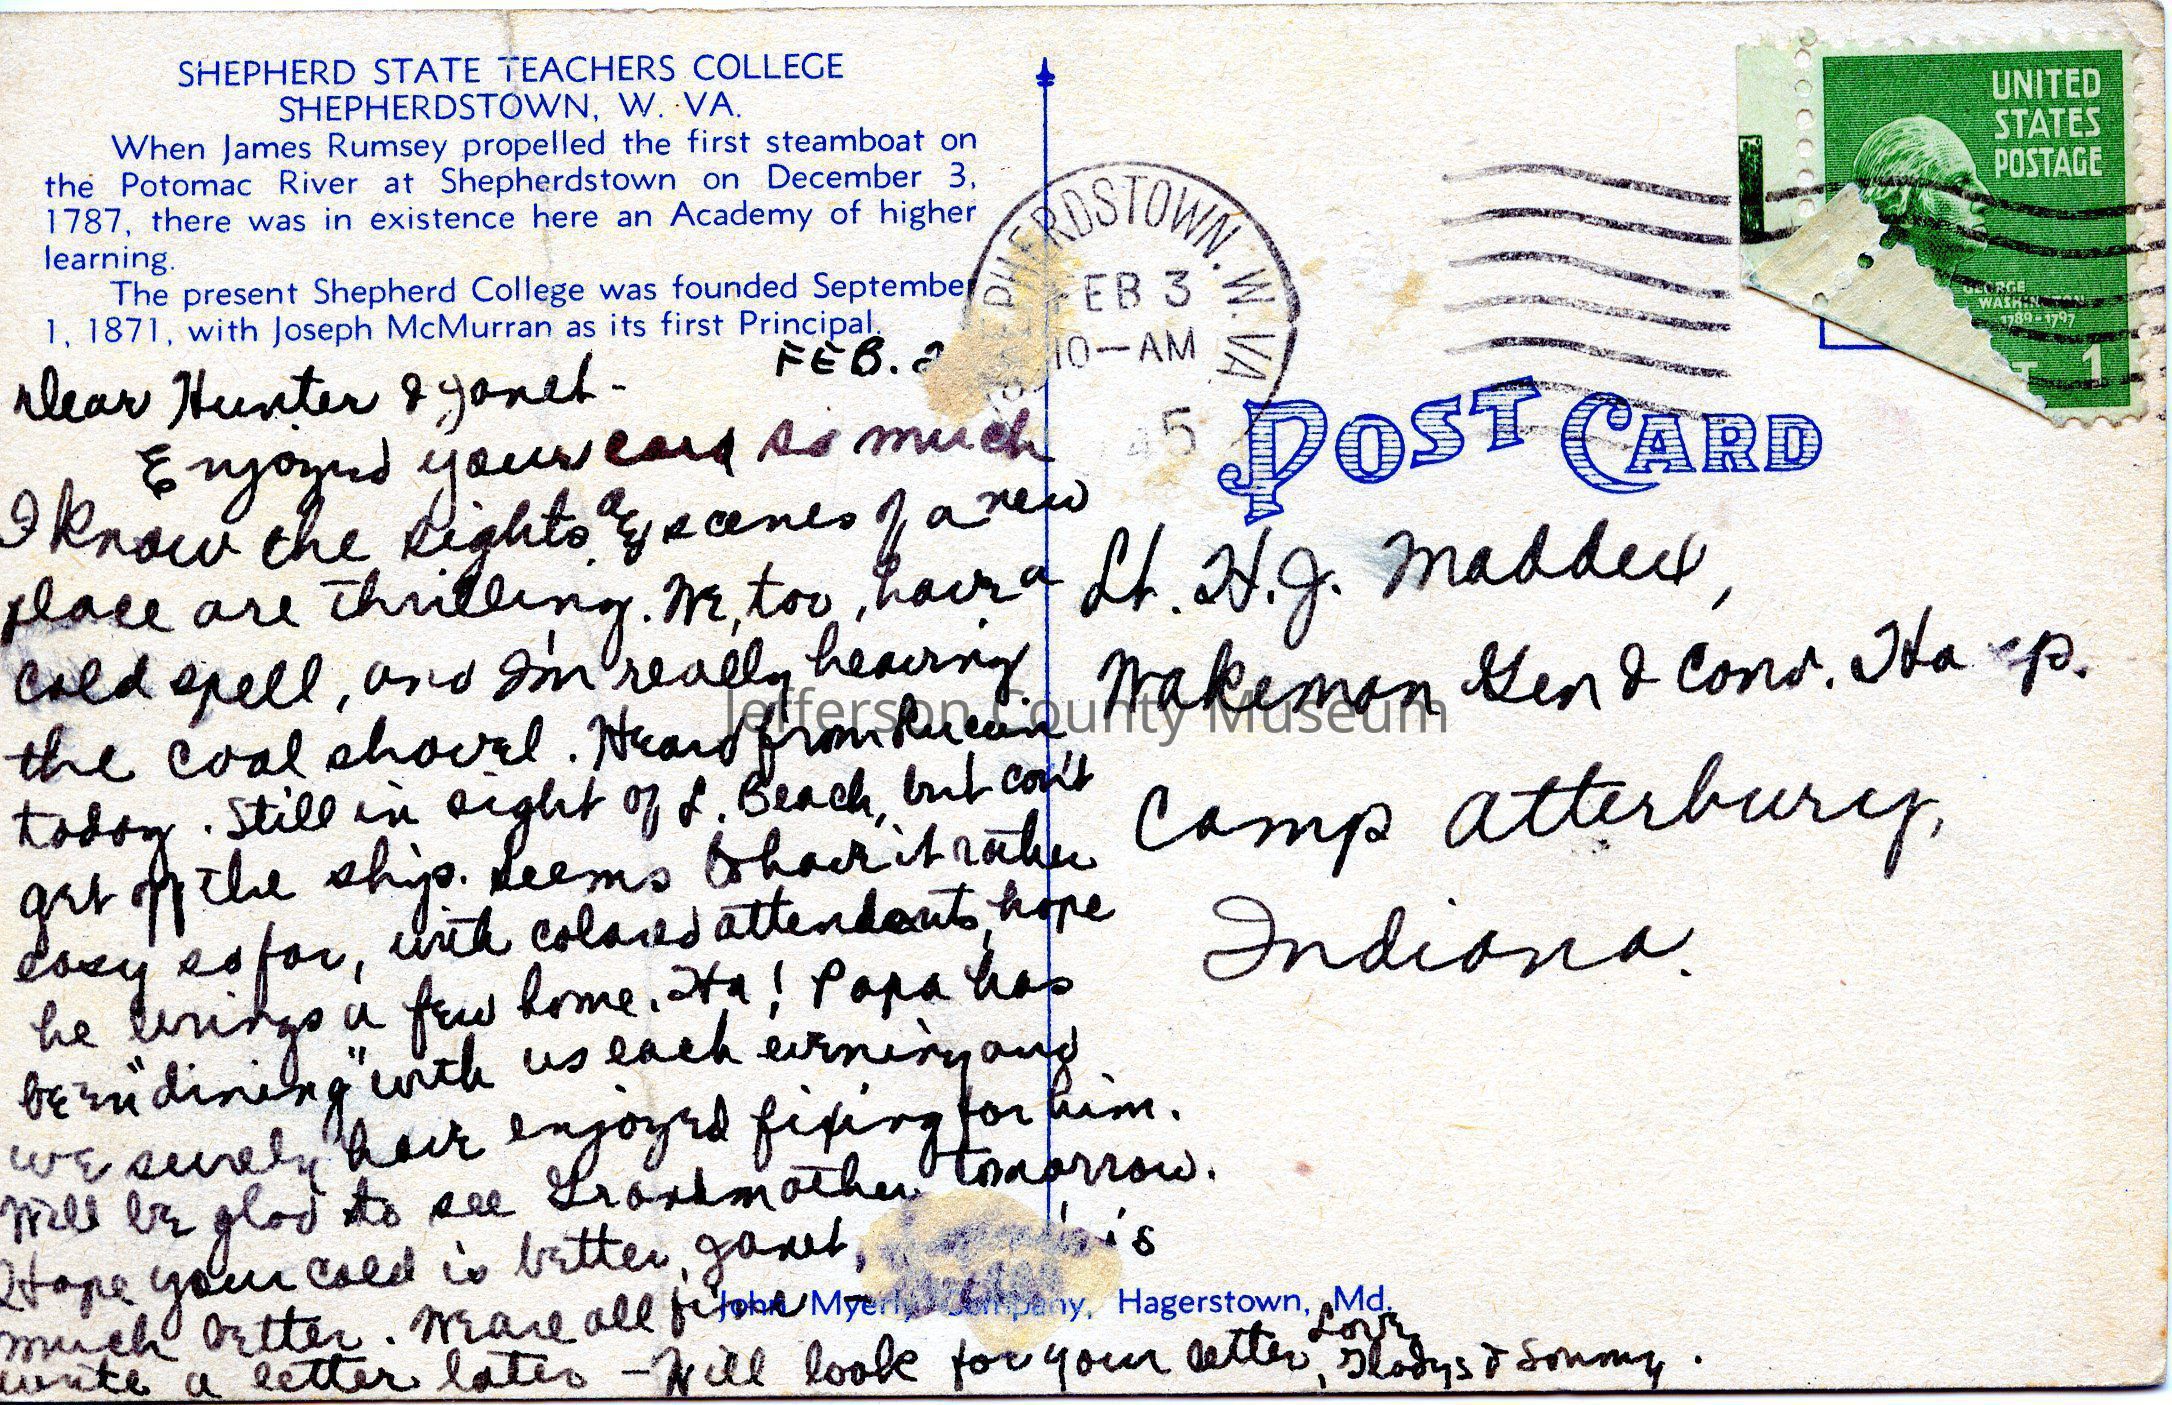 SHEPHERD STATE TEACHERS COLLEGE
SHEPHERDSTOWN, W. VA.
When James Rumsey propelled the first steamboat on
the Potomac River at Shepherdstown on December 3,
1787, there was in existence here an Academy of higher
learning.
The present Shepherd College was founded September
1, 1871, with Joseph McMurran as its first Principal.
FEB. 2
Dear Hunter & Janet-
Enjoyed your card so much
I know the sights & scenes of a new
place are thrilling. We, too, have a
cold spell, and I'm really heaving
the coal shovel. Heard from
today. Still in sight of L. Beach, but can't
get off the ship. Seems to have it rather
easy so far, with colored attendants, hope
he brings a few home. Ha! Papa has
been "dining" with us each evening and
we surely have enjoyed fixing for him.
Will be glad to see Grandmother tomorrow.
Hope your cold is better, Janet, is
much better. We are all fine -
write a letter later - Will look for your letter,
Love,
Gladys & Sonny.
SHEPHERDSTOWN. W. VA.
FEB 3
10-AM
45
UNITED
STATES
POSTAGE
GEORGE
WASHINGTON
1789-1797
1
POST CARD
Lt. H. J. Maddex,
Wakeman Gen & Conv. Hosp.
Camp Atterbury,
Indiana.
Jefferson County Museum
John Myerly Company, Hagerstown, Md.